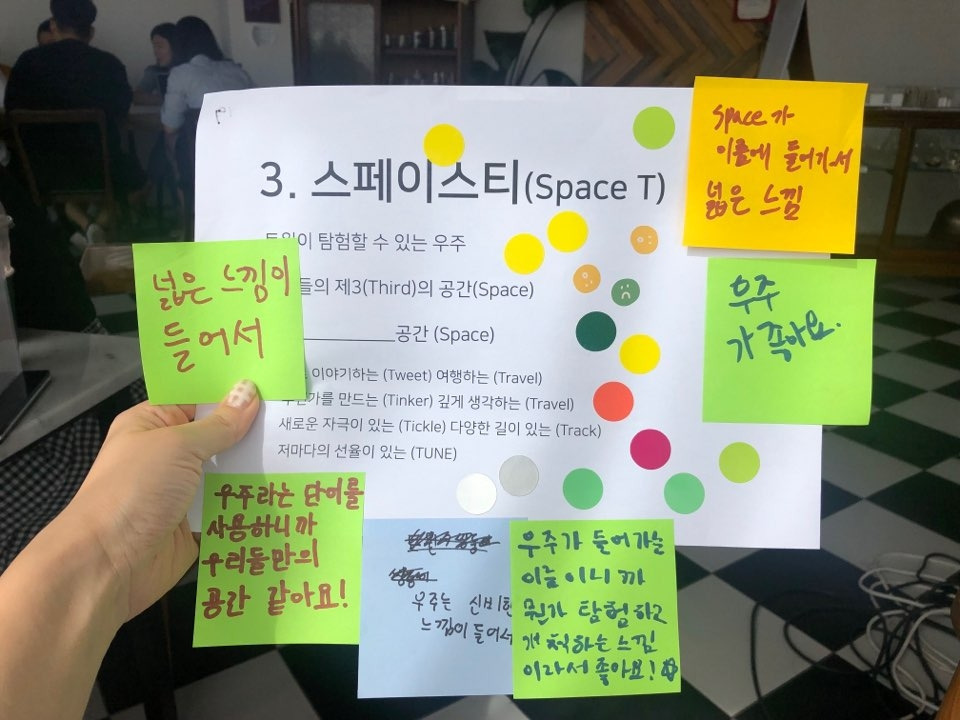 3. 스페이스티(Space T)
탐험할 수 있는 우주
들의 제3(Third)의 공간(Space)
공간 (Space)
이야기하는 (Tweet) 여행하는 (Travel)
만드는 (Tinker) 깊게 생각하는 (Travel)
새로운 자극이 있는 (Tickle) 다양한 길이 있는 (Track)
저마다의 선율이 있는 (TUNE)
Space가
이름에 들어가서
넓은 느낌
넓은 느낌이
들어서
우주
가 좋아요.
우주라는 단어를
사용하니까
우리들만의
공간 같아요!
우주는 신비한
느낌이 들어서
우주가 들어가는
이름이니까
뭔가 탐험하고
개척하는 느낌
이라서 좋아요!